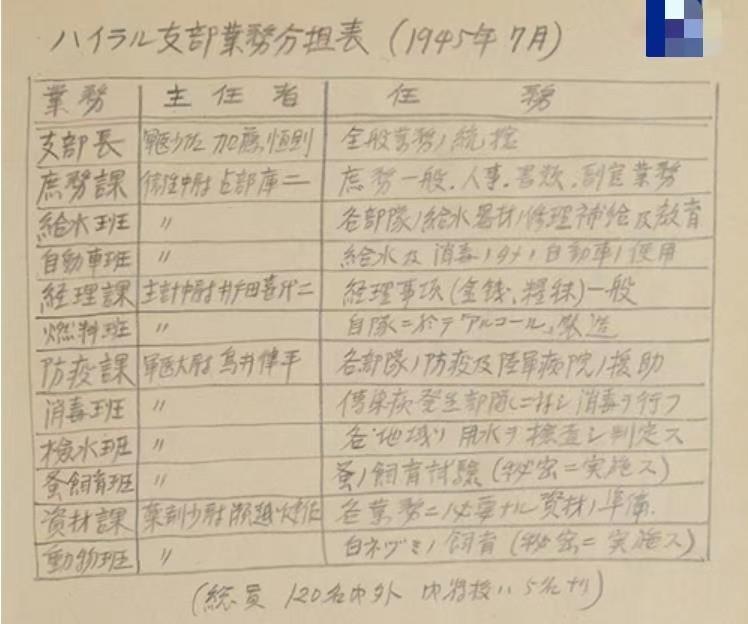 ハイラル支部業務分担表 (1945年7月)
業務 主任者 任務
支部長 軍医少佐 加藤恒則 全般業務ノ統轄
庶務課 衛生中尉 占部庫二 庶務一般、人事、書類、副官業務
給水班 〃 各部隊ノ給水器材ノ修理補給及教育
自動車班 〃 給水及消毒ノタメノ自動車ノ使用
経理課 主計中尉 井田喜代二 経理事項(金銭、糧秣)一般
燃料班 〃 自隊ニ於テ「アルコール」製造
防疫課 軍医大尉 鳥井偉平 各部隊ノ防疫及陸軍病院ノ援助
消毒班 〃 傳染病発生部隊ニ対シ消毒ヲ行フ
検水班 〃 各地域ノ用水ヲ検査シ判定ス
蚤飼育班 〃 蚤ノ飼育試験(秘密ニ実施ス)
資材課 薬剤少尉 各業務ニ必要ナル資材ノ準備.
動物班 〃 白ネヅミノ飼育(秘密ニ実施ス)
(総員 120名内外 内将校ハ5名ナリ)